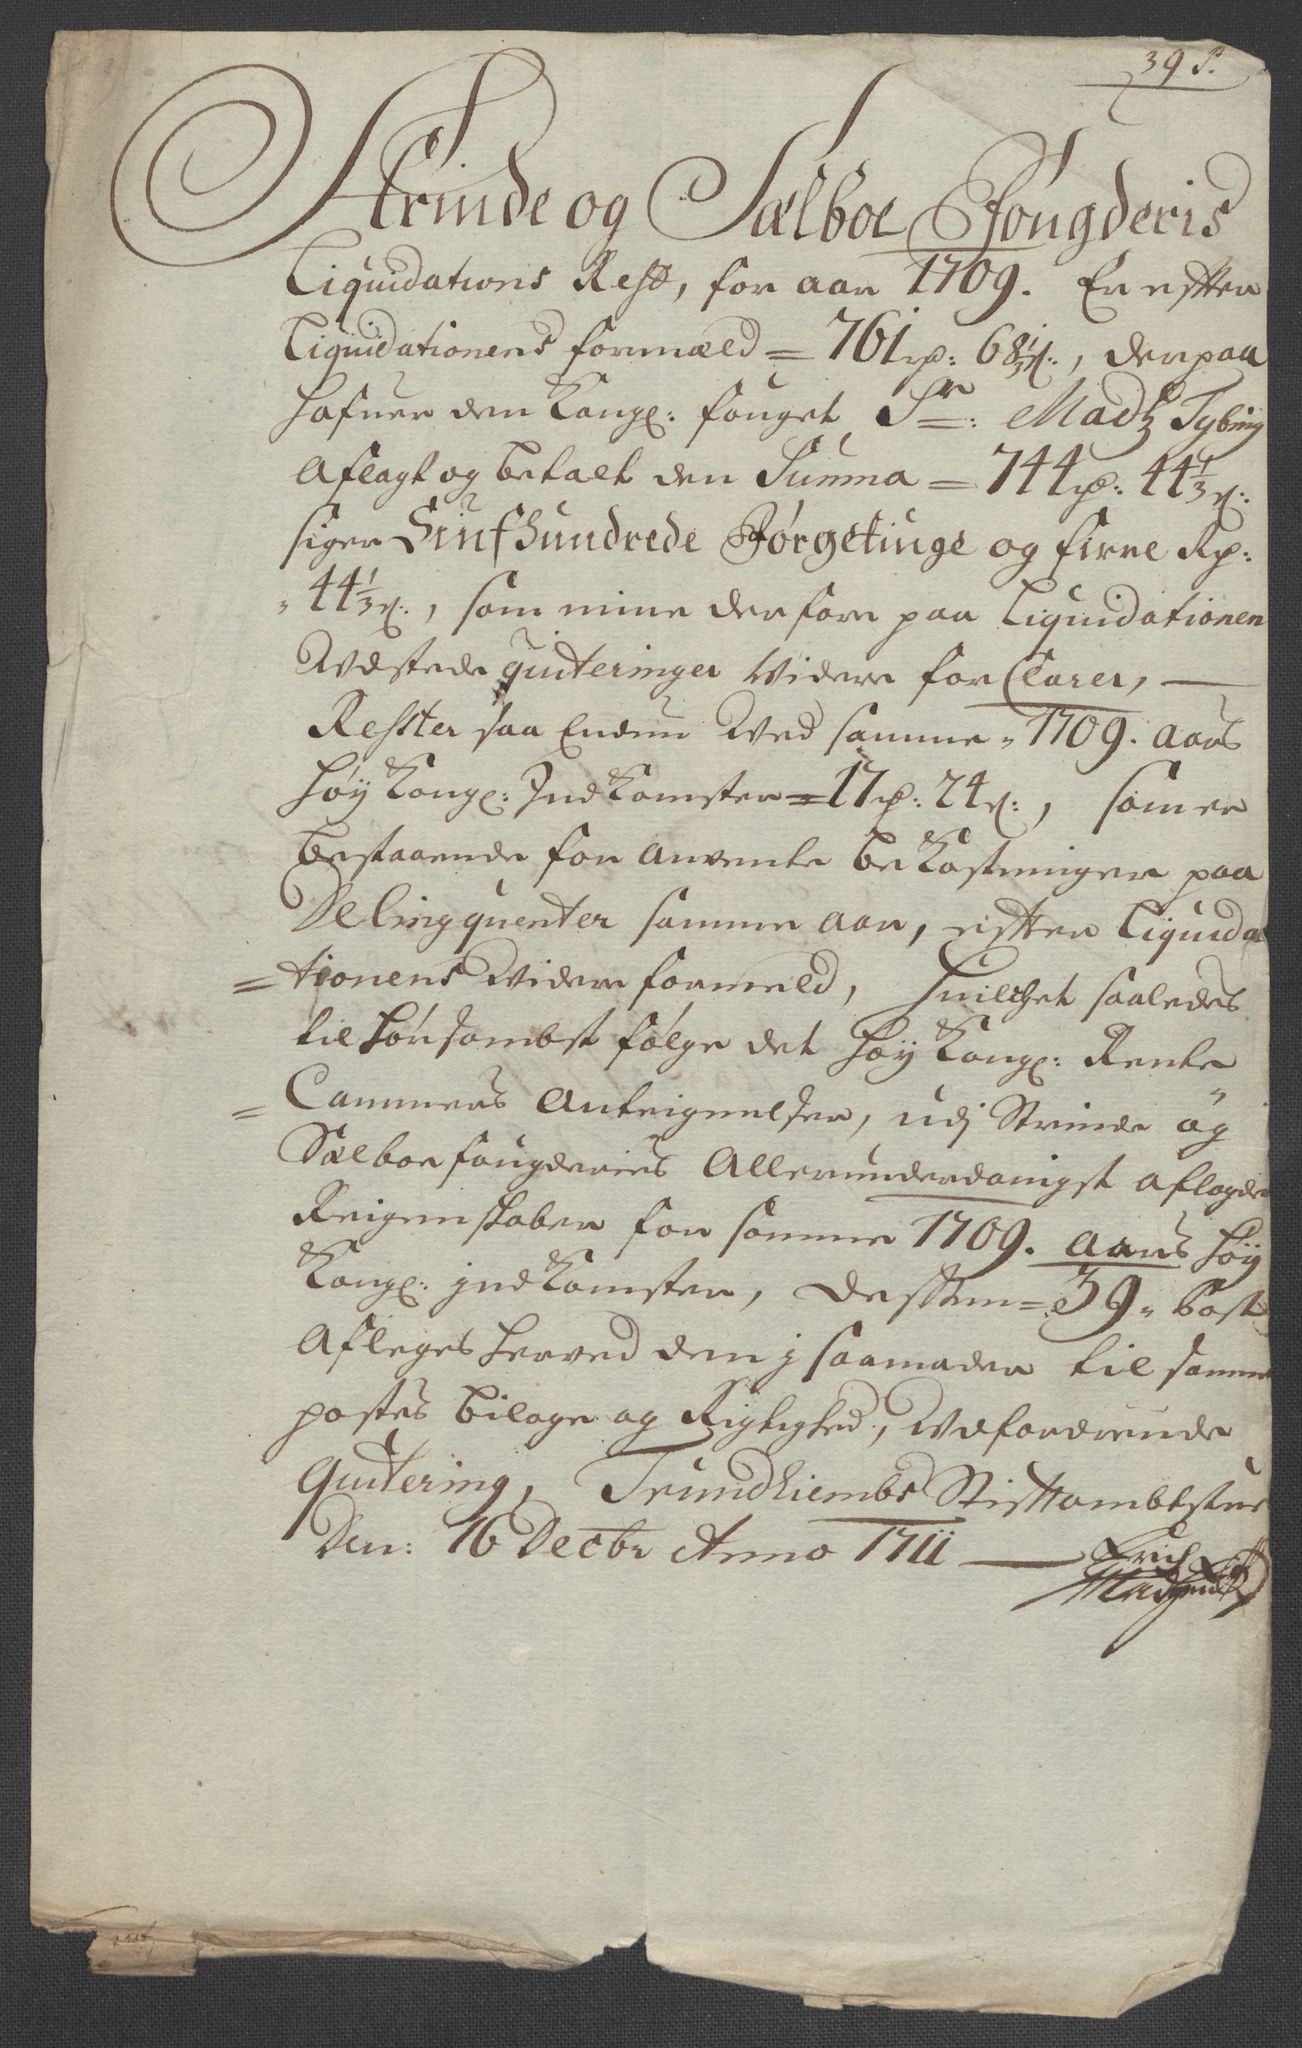 39 P.
Strinde og Sælboe Fougderis
Liquidations Rest, for aar 1709. Er efter
Liquidationens formæld = 761 rp: 68⅓ s:, derpaa
hafuer den Kongl: fouget Sr: Madtz Tybring
aflagt og betalt den Summa = 744 rp: 44⅓ s:
siger Siufhundrede Førgetiuge og firre Rp:
" 44⅓ s:, som mine derfore paa Liquidationen
Udstæde quiteringer Videre for Clarer, —
Rester saa Endnu Ved samme " 1709. aars
høy Kongl: Ind Komster = 17 rp: 24 s:, som er
bestaaende for anvente be Kostninger paa
Delingquenter samme aar, efter Liquida
= tionens Videre formeld, huilchet saaledes
til hørsombst følge det høy Kongl: Rente
= Cammers Anteignelser, udj Strinde og
Sælboe fougderies Allerunderdanigst aflagde
Reigenskaber for samme 1709. aars høy
Kongl: jndKomster, dessen = 39 " Post
Afleges herved den j saamaader til samme
postes bilage og Rigtighed, Udfordrende
Quitering, Trundhiembs Stiftambtstue
Den: 16 Decbr Anno 1711 —
Erich